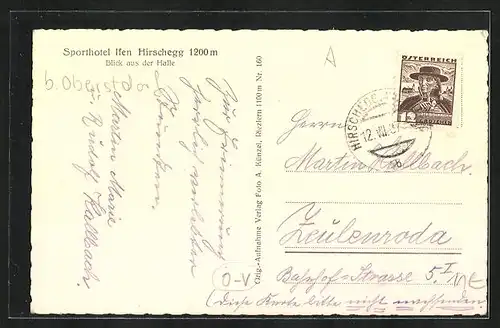 Sporthotel Ifen Hirschegg 1200 m
Blick aus der Halle
b. Oberstdo
Zur Erinnerung
herrlich verlebten
Martin Marie
u. Rudolf Hallbach.
Orig.-Aufnahme Verlag Foto A. Künzel, Riezlern 1100 m Nr. 160
A
ÖSTERREICH
HIRSCHEGG
12. VII. 37
Herrn
Martin Hallbach.
Zeulenroda
Bahnhof-Strasse 5 I
O-V
(diese Karte bitte nicht nachsenden.